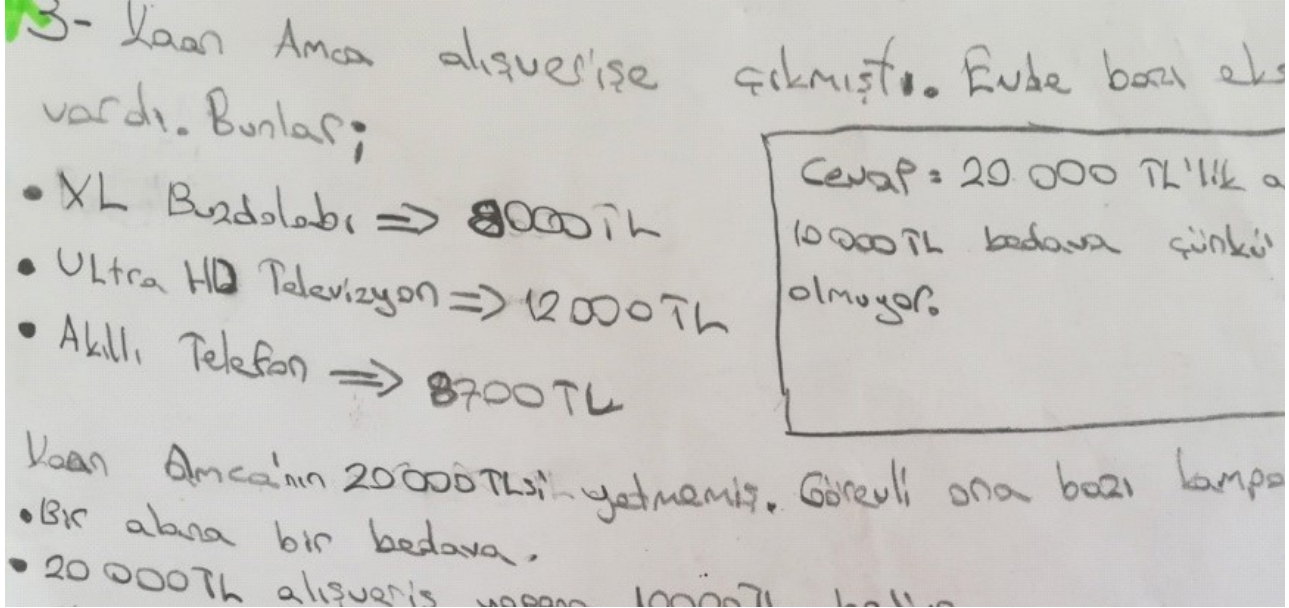 3- Kaan Amca alışverişe çıkmıştı. Evde bazı eks
vardı. Bunlar;
• XL Buzdolabı => 8000TL
• ULtra HD Televizyon => 12000TL
• Akıllı Telefon => 8700TL
Cevap = 20.000 TL'lik a
10000TL bedava çünkü
olmuyor.
Kaan Amca'nın 20000TLsi yetmemiş. Görevli ona bazı kampa
• Bir alana bir bedava.
• 20000TL alışveriş yapana 10000TL